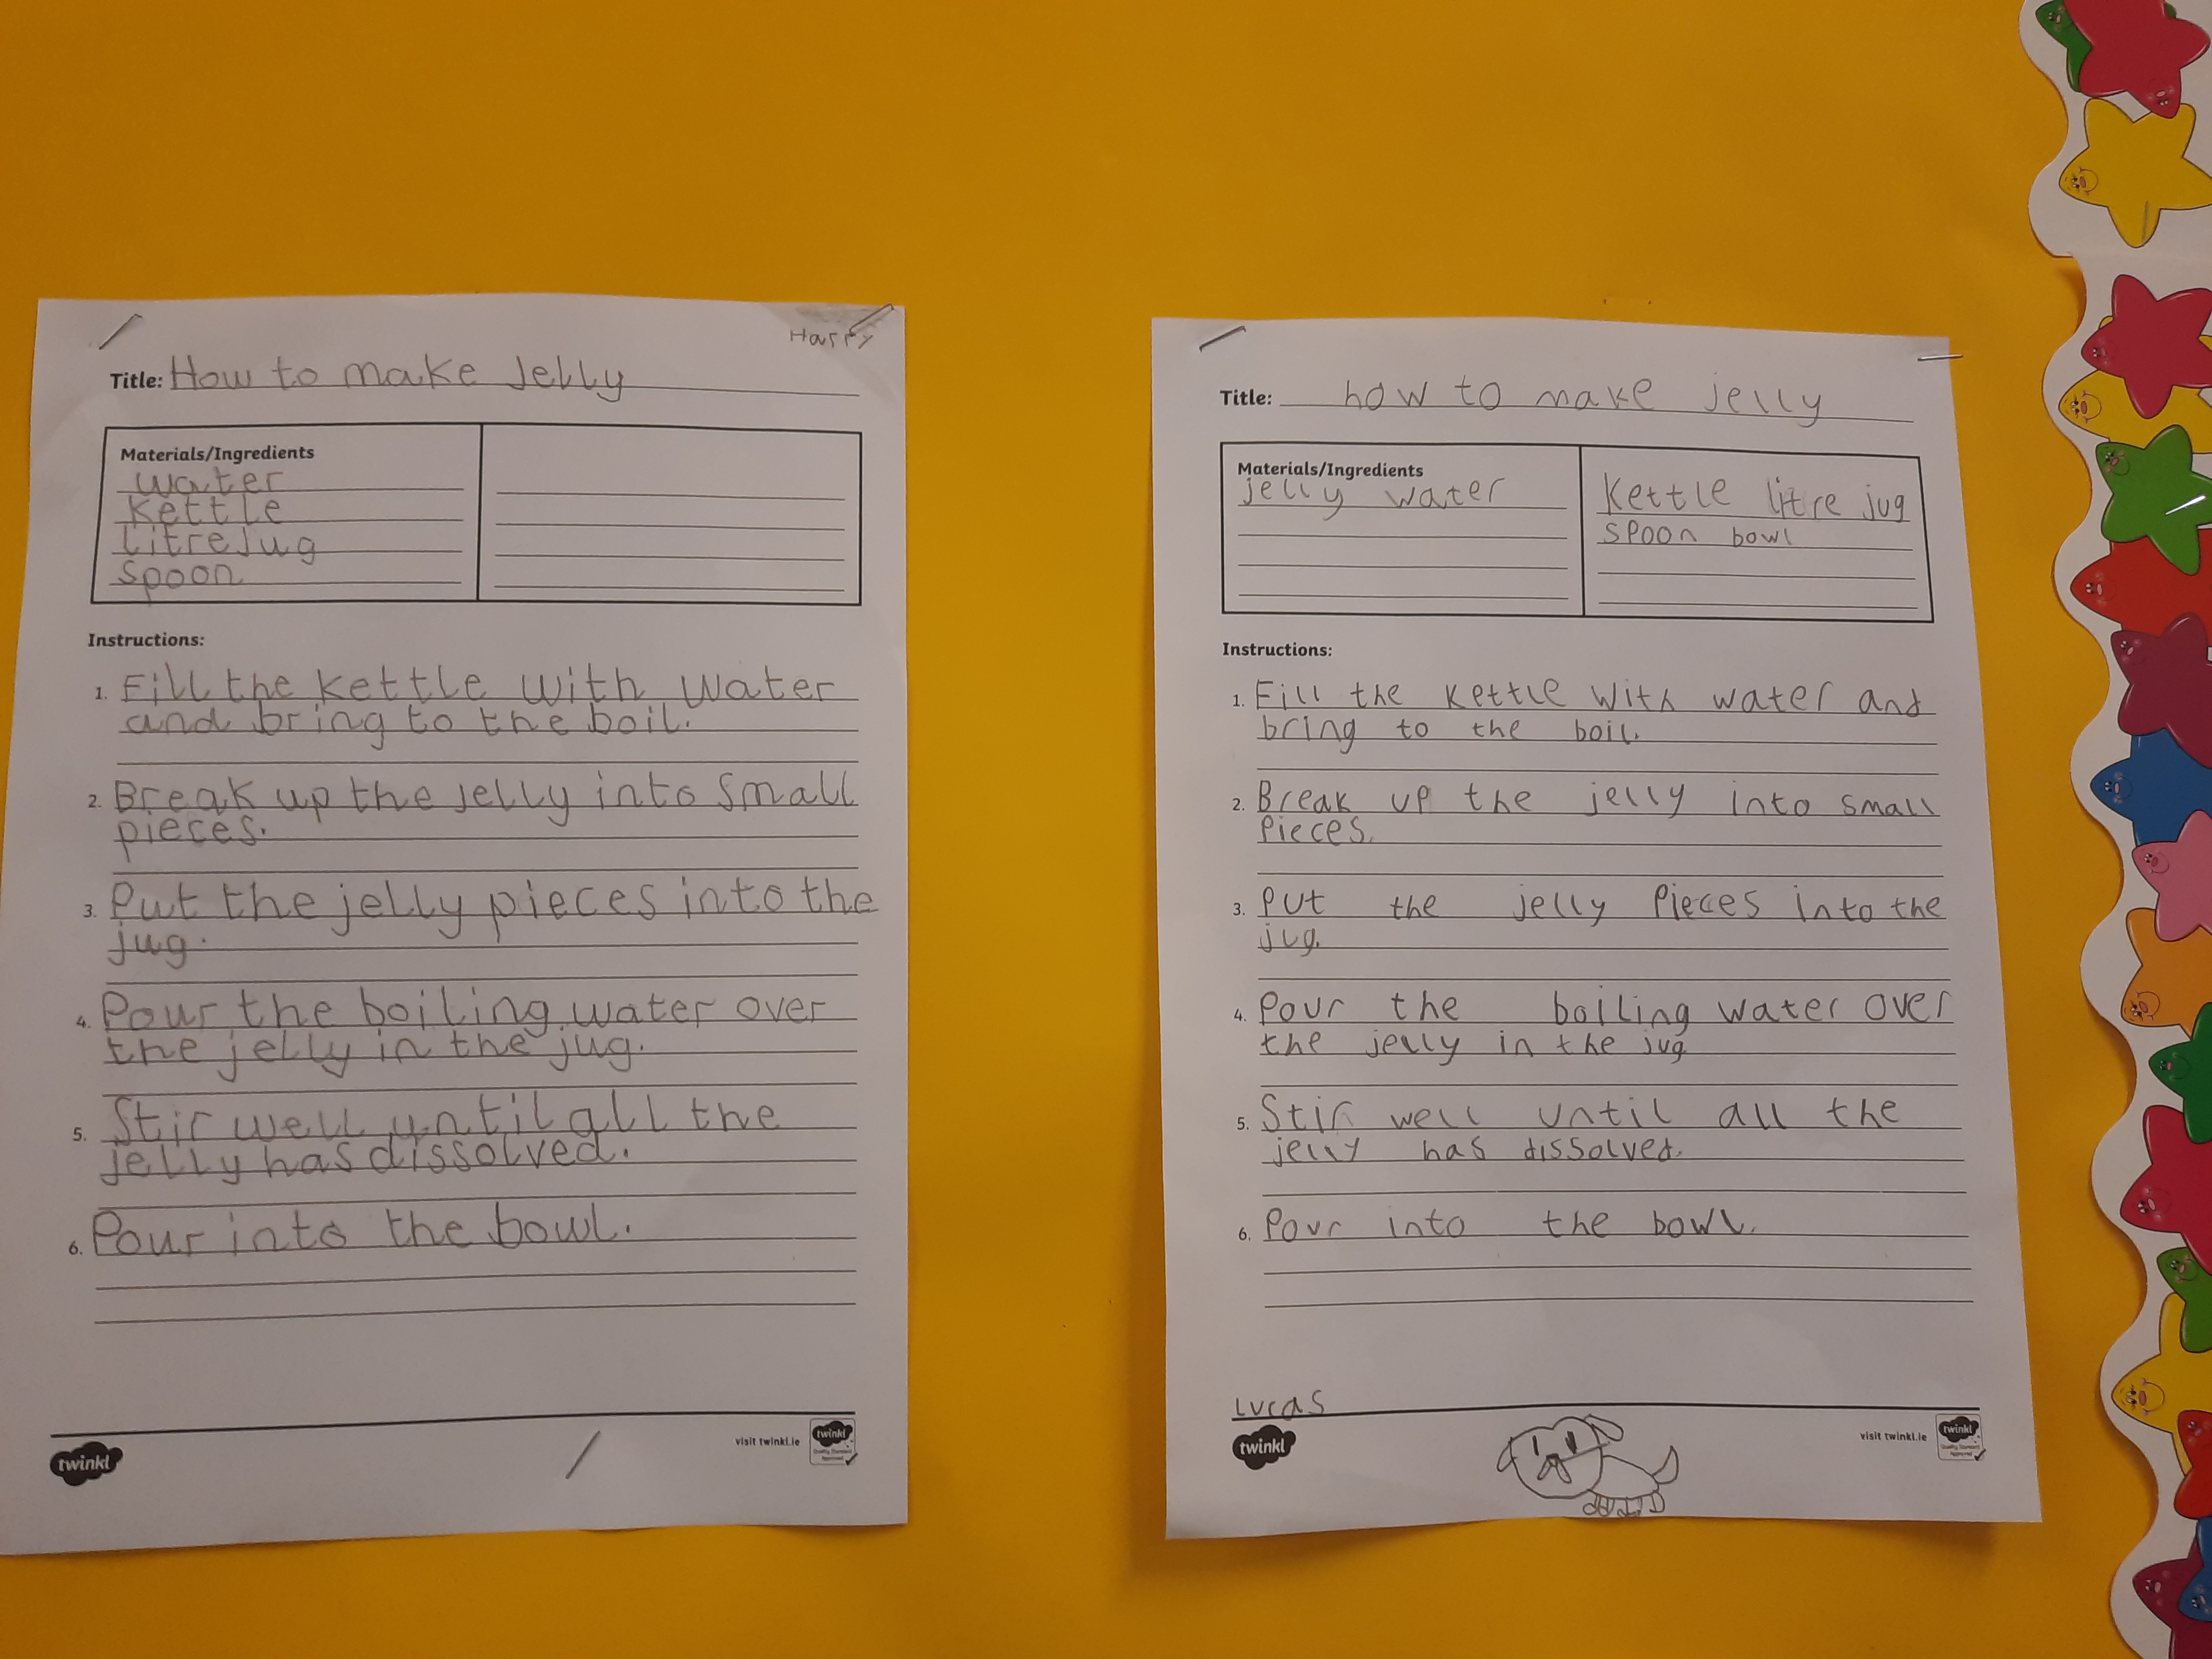 Harry
Title: How to make Jelly
Materials/Ingredients
water
kettle
litre Jug
spoon
Instructions:
1. Fill the kettle with water
and bring to the boil.
2. Break up the jelly into small
pieces.
3. Put the jelly pieces into the
jug.
4. Pour the boiling water over
the jelly in the jug.
5. Stir well until all the
jelly has dissolved.
6. Pour into the bowl.
twinkl
visit twinkl.ie
twinkl
Quality Standard
Approved
Title: how to make jelly
Materials/Ingredients
jelly water
kettle litre jug
spoon bowl
Instructions:
1. Fill the kettle with water and
bring to the boil.
2. Break up the jelly into small
pieces.
3. Put the jelly pieces into the
jug.
4. Pour the boiling water over
the jelly in the jug
5. Stir well until all the
jelly has dissolved.
6. Pour into the bowl.
Lucas
twinkl
visit twinkl.ie
twinkl
Quality Standard
Approved